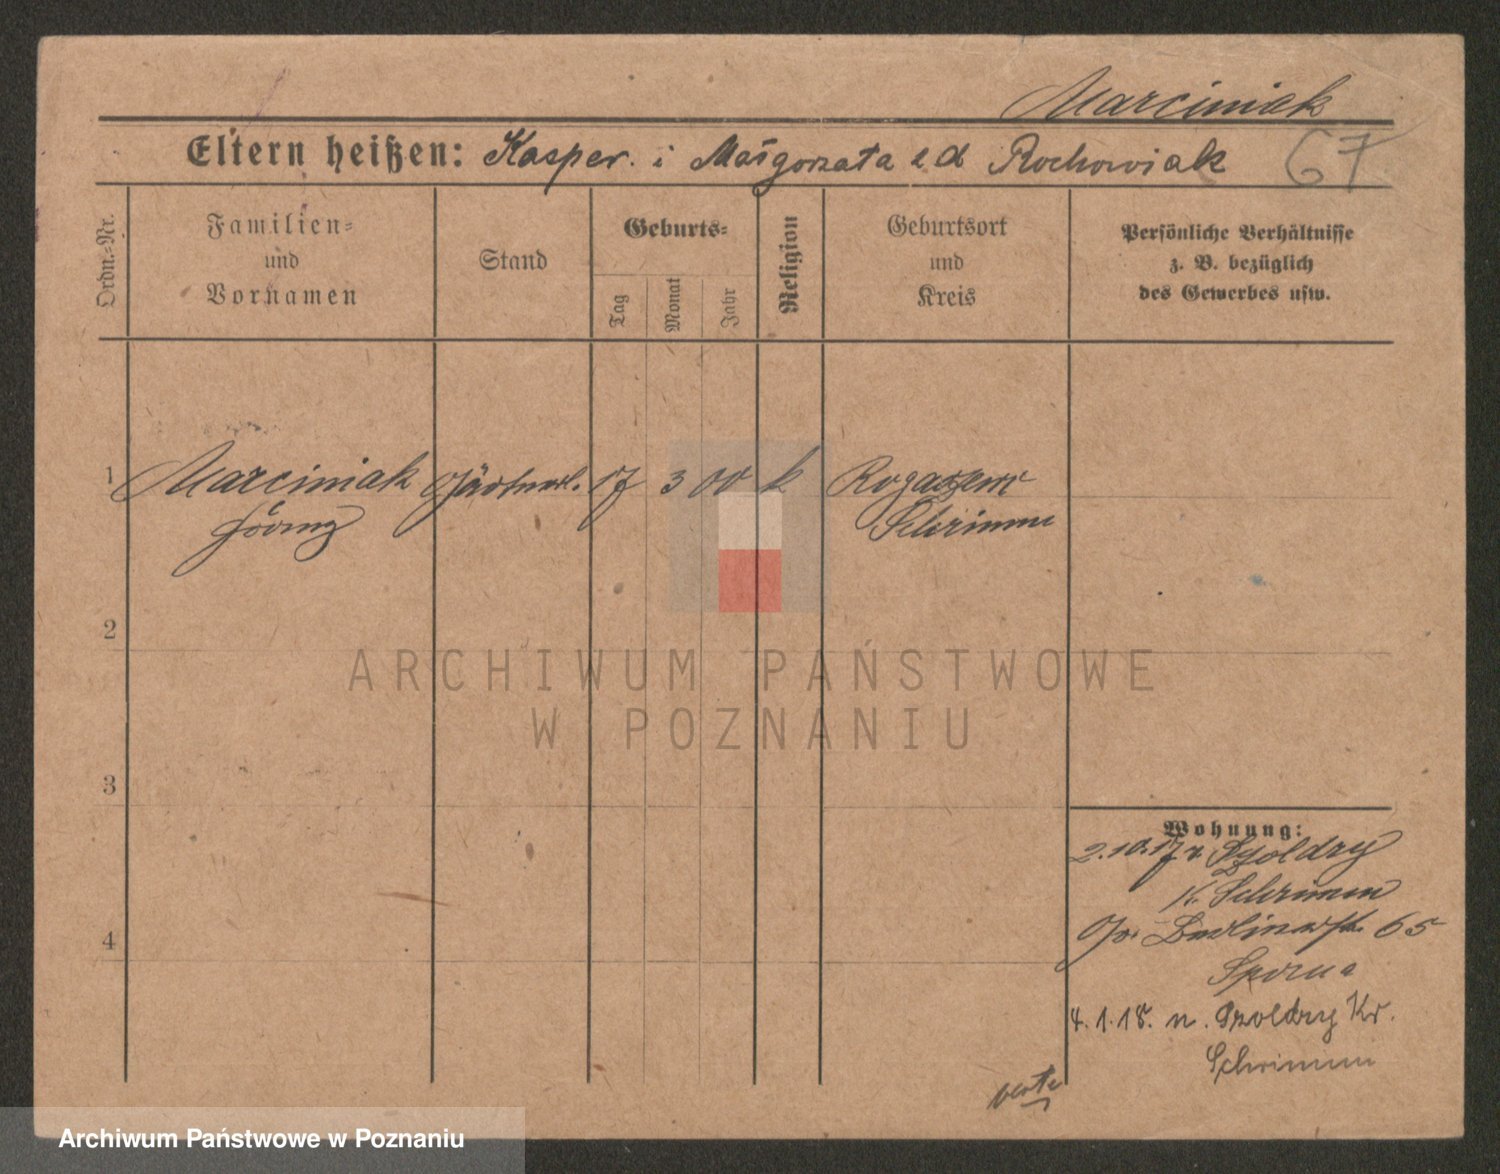 Marciniak
Eltern heißen: Kasper. i Małgorzata e d Rochowiak 67
Ordn.-Nr.
Familien-
und
Vornamen
Stand
Geburts-
Tag
Monat
Jahr
Religion
Geburtsort
und
Kreis
Persönliche Verhältnisse
z. B. bezüglich
des Gewerbes usw.
1 Marciniak Gärtnerl. 17 3 00 k Rogaczewo
Schrimm
2
3
4
Wohnung:
2.10.17 v. Szoldry
K. Schrimm
Gr. Berlinerstr. 65
4.1.18. n. Szoldry Kr.
Schrimm
verte
ARCHIWUM PAŃSTWOWE
W POZNANIU
Archiwum Państwowe w Poznaniu